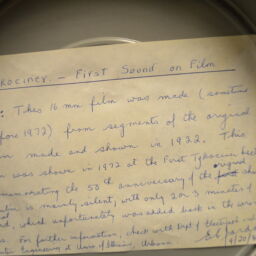 KOCINER. — First Sound on Film
: This 16 mm film was made (sometime
fore 1972) from segments of the original
made and shown in 1922. This
was shown in 1972 at the First Tykociner lect
memorating the 50th anniversary of the original
is mainly silent, with only 2 or 3 minutes of
which unfortunately was added back in the wro
s. For further information, check with Dept of Electrical
Engineering at Univ of Illinois, Urbana
9/20/